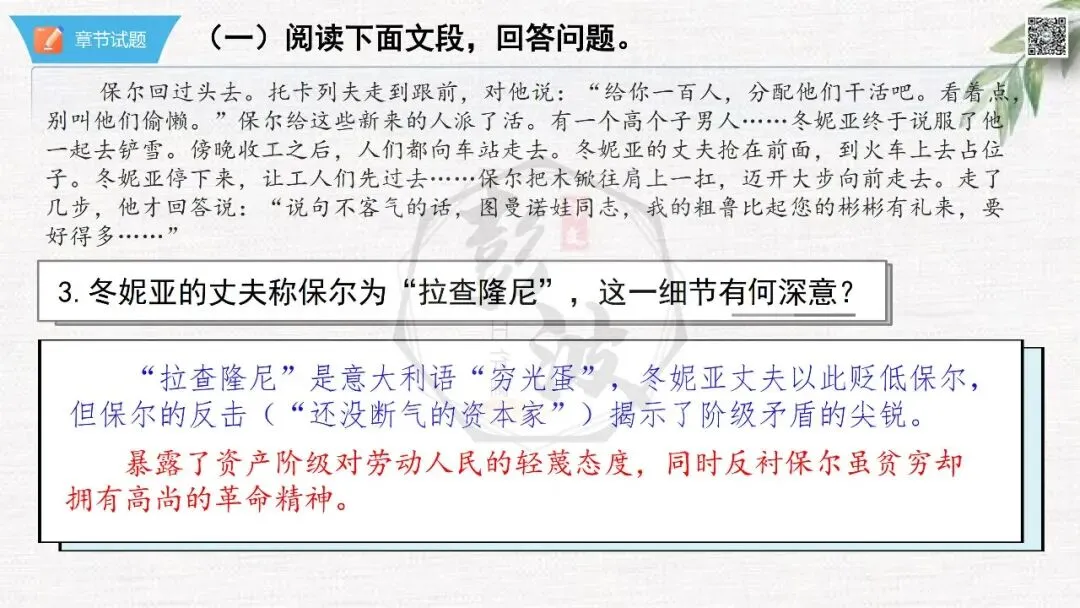 章节试题
（一）阅读下面文段，回答问题。
保尔回过头去。托卡列夫走到跟前，对他说：“给你一百人，分配他们干活吧。看着点，
别叫他们偷懒。”保尔给这些新来的人派了活。有一个高个子男人……冬妮亚终于说服了他
一起去铲雪。傍晚收工之后，人们都向车站走去。冬妮亚的丈夫抢在前面，到火车上去占位
子。冬妮亚停下来，让工人们先过去……保尔把木锨往肩上一扛，迈开大步向前走去。走了
几步，他才回答说：“说句不客气的话，图曼诺娃同志，我的粗鲁比起您的彬彬有礼来，要
好得多……”
3.冬妮亚的丈夫称保尔为“拉查隆尼”，这一细节有何深意？
“拉查隆尼”是意大利语“穷光蛋”，冬妮亚丈夫以此贬低保尔，
但保尔的反击（“还没断气的资本家”）揭示了阶级矛盾的尖锐。
暴露了资产阶级对劳动人民的轻蔑态度，同时反衬保尔虽贫穷却
拥有高尚的革命精神。